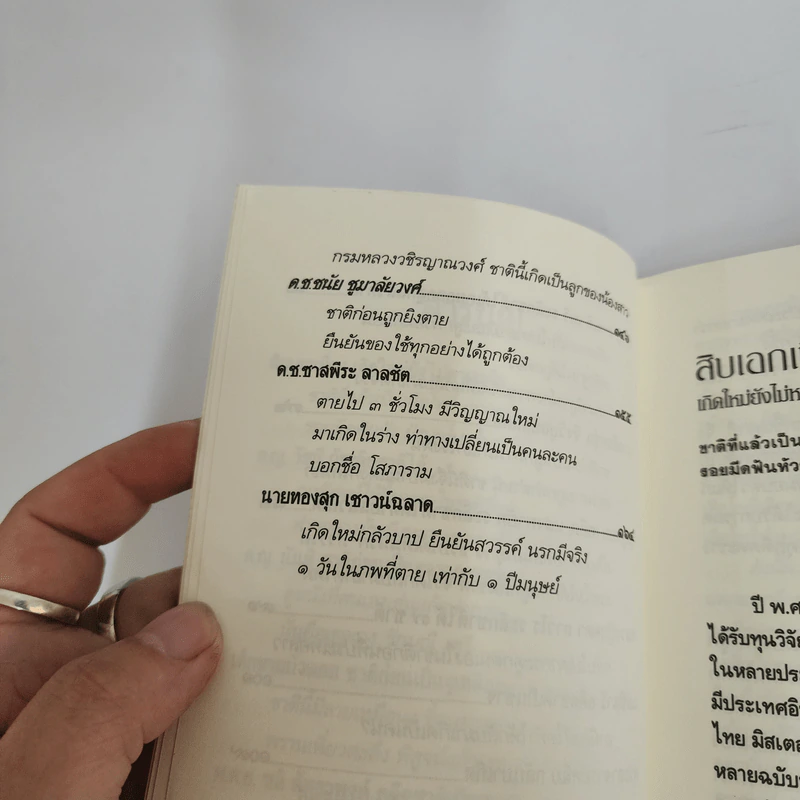 กรมหลวงวชิรญาณวงศ์ ชาตินี้เกิดเป็นลูกของน้องสาว
ด.ช.ชนัย ชูมาลัยวงศ์ ๑๔๖
ชาติก่อนถูกยิงตาย
ยืนยันของใช้ทุกอย่างได้ถูกต้อง
ด.ช.ชาสพีระ ลาลชัต ๑๕๕
ตายไป ๓ ชั่วโมง มีวิญญาณใหม่
มาเกิดในร่าง ท่าทางเปลี่ยนเป็นคนละคน
บอกชื่อ โสภาราม
นายทองสุก เชาวน์ฉลาด ๑๖๔
เกิดใหม่กลัวบาป ยืนยันสวรรค์ นรกมีจริง
๑ วันในภพที่ตาย เท่ากับ ๑ ปีมนุษย์
สิบเอก
เกิดใหม่ยังไม่
ชาติที่แล้วเป็น
รอยมีดฟันหัว
ปี พ.ศ
ได้รับทุนวิจัย
ในหลายประ
มีประเทศอิ
ไทย มิสเตอ
หลายฉบับ